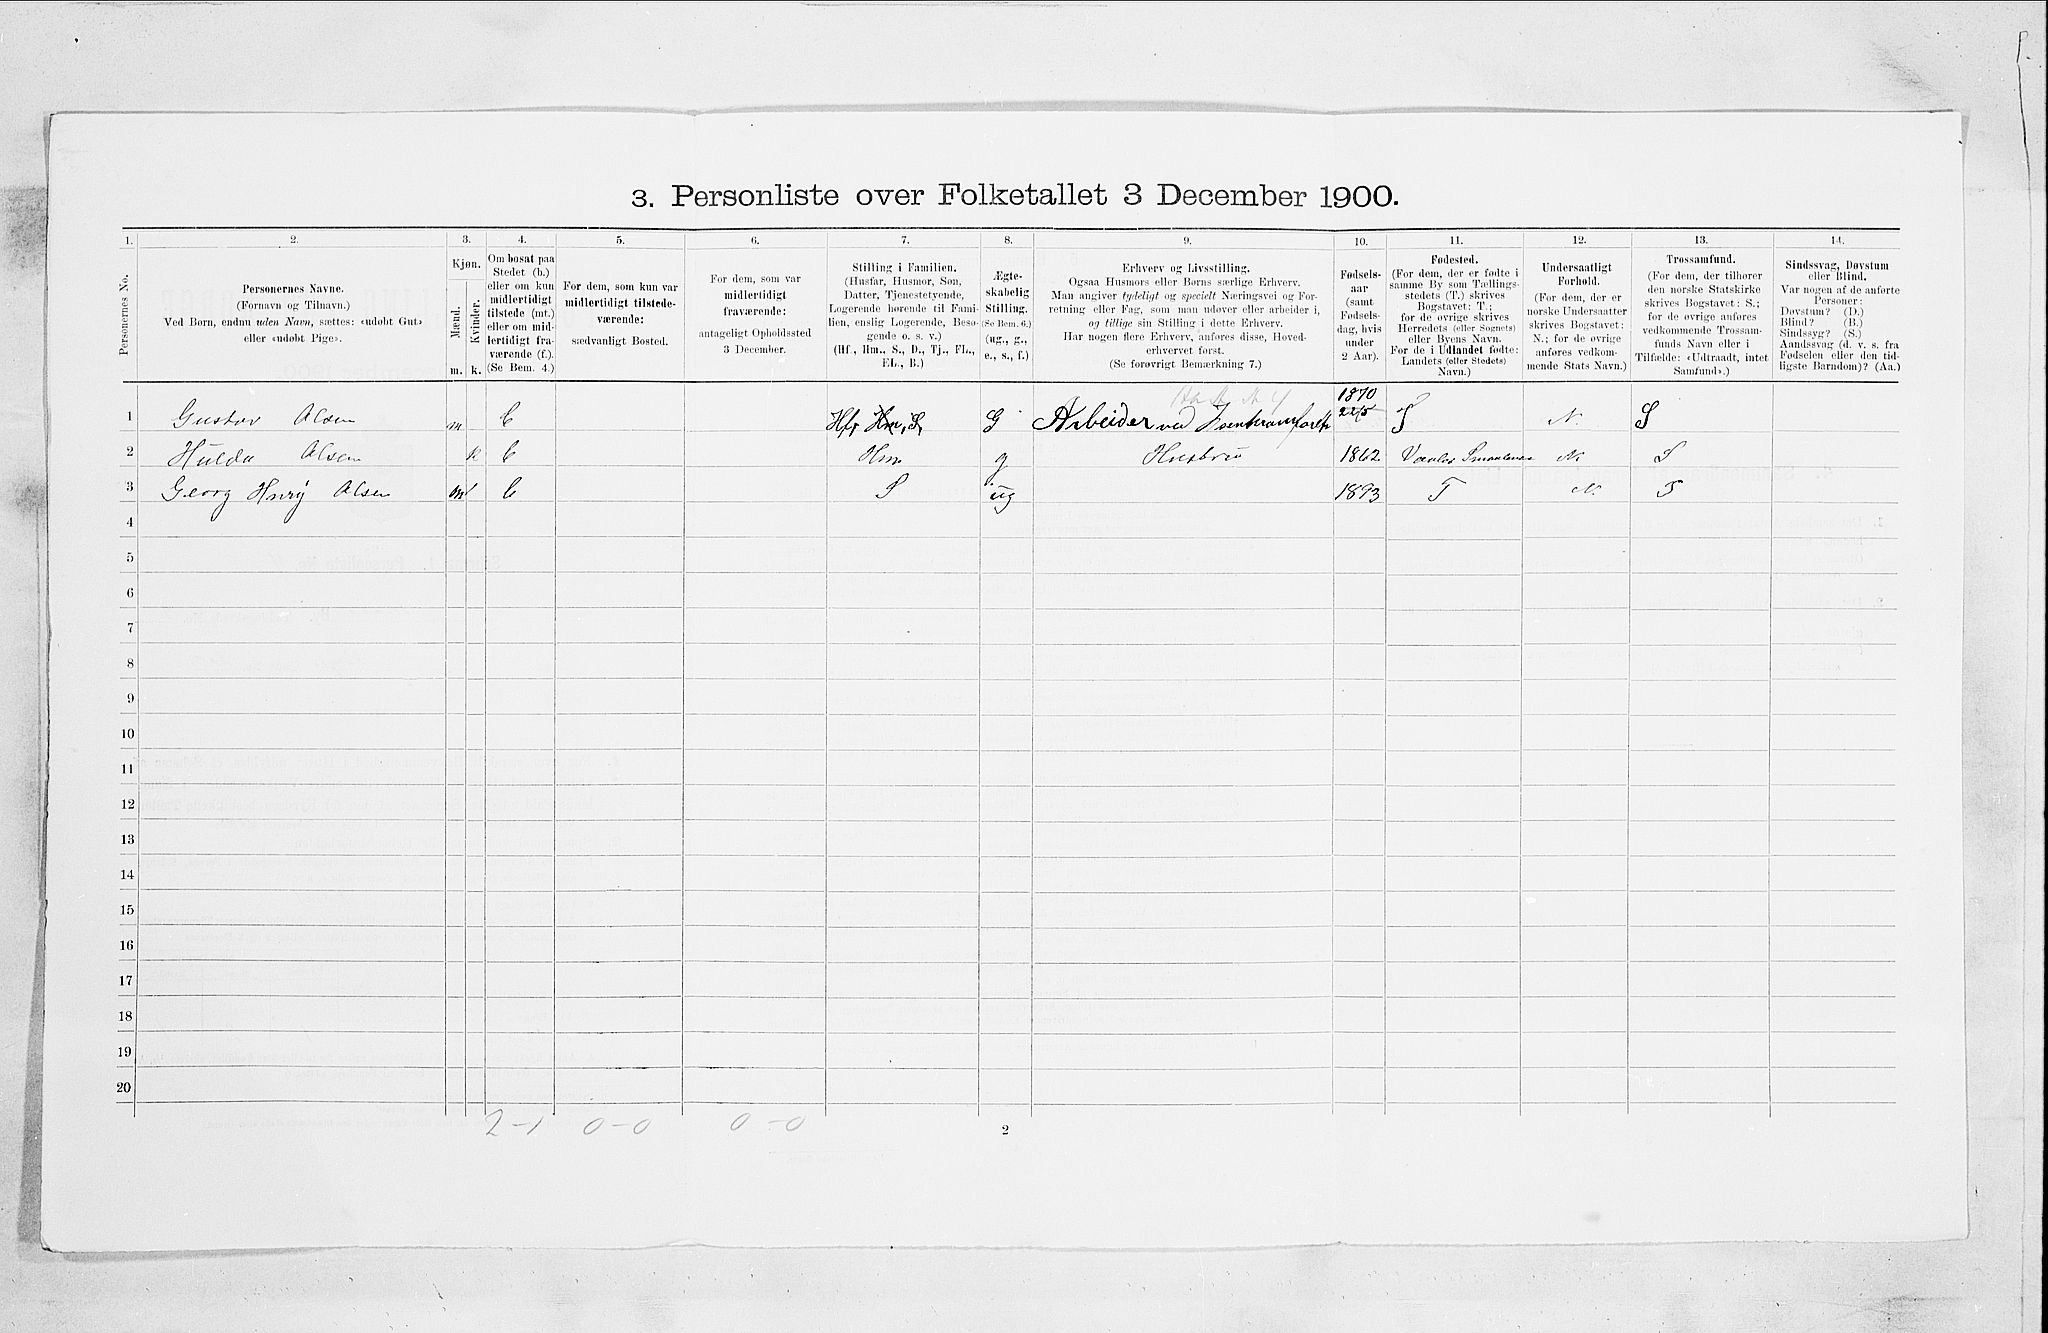 3. Personliste over Folketallet 3 December 1900.
1. 2. 3. 4. 5. 6. 7. 8. 9. 10. 11. 12. 13. 14.
Personernes No.
Personernes Navne.
(Fornavn og Tilnavn.)
Ved Børn, endnu uden Navn, sættes: «udøbt Gut»
eller «udøbt Pige».
Kjøn.
Mænd.
Kvinder.
m. k.
Om bosat paa
Stedet (b.)
eller om kun
midlertidigt
tilstede (mt.)
eller om mid-
lertidigt fra-
værende (f.).
(Se Bem. 4.)
For dem, som kun var
midlertidigt tilstede-
værende:
sædvanligt Bosted.
For dem, som var
midlertidigt
fraværende:
antageligt Opholdssted
3 December.
Stilling i Familien.
(Husfar, Husmor, Søn,
Datter, Tjenestetyende,
Logerende hørende til Fami-
lien, enslig Logerende, Besø-
gende o. s. v.)
(Hf., Hm., S., D., Tj., FL.,
EL., B.)
Ægte-
skabelig
Stilling.
(Se Bem. 6.)
(ug., g.,
e., s., f.)
Erhverv og Livsstilling.
Ogsaa Husmors eller Børns særlige Erhverv.
Man angiver tydeligt og specielt Næringsvei og For-
retning eller Fag, som man udøver eller arbeider i,
og tillige sin Stilling i dette Erhverv.
Har nogen flere Erhverv, anføres disse, Hoved-
erhvervet først.
(Se forøvrigt Bemærkning 7.)
Fødsels-
aar
(samt
Fødsels-
dag, hvis
under
2 Aar).
Fødested.
(For dem, der er fødte i
samme By som Tællings-
stedets (T.) skrives
Bogstavet: T.;
for de øvrige skrives
Herredets (eller Sognets)
eller Byens Navn.
For de i Udlandet fødte:
Landets (eller Stedets)
Navn.)
Undersaatligt
Forhold.
(For dem, der er
norske Undersaatter
skrives Bogstavet:
N.; for de øvrige
anføres vedkom-
mende Stats Navn.)
Trossamfund.
(For dem, der tilhører
den norske Statskirke
skrives Bogstavet: S.;
for de øvrige anføres
vedkommende Trossam-
funds Navn eller i
Tilfælde: «Udtraadt, intet
Samfund».)
Sindssvag, Døvstum
eller Blind.
Var nogen af de anførte
Personer:
Døvstum? (D.)
Blind? (B.)
Sindssyg? (S.)
Aandssvag (d. v. s. fra
Fødselen eller den tid-
ligste Barndom)? (Aa.)
1870
1 Gustav Olsen m b Hf, Hm, S, G Arbeider ved 22/5 T N. S
2 Hulda Olsen k b Hm g Hustru 1862 N S
3 Georg Henry Olsen m b S ug 1893 T N. S
4
5
6
7
8
9
10
11
12
13
14
15
16
17
18
19
20
2-1 0-0 0-0
2